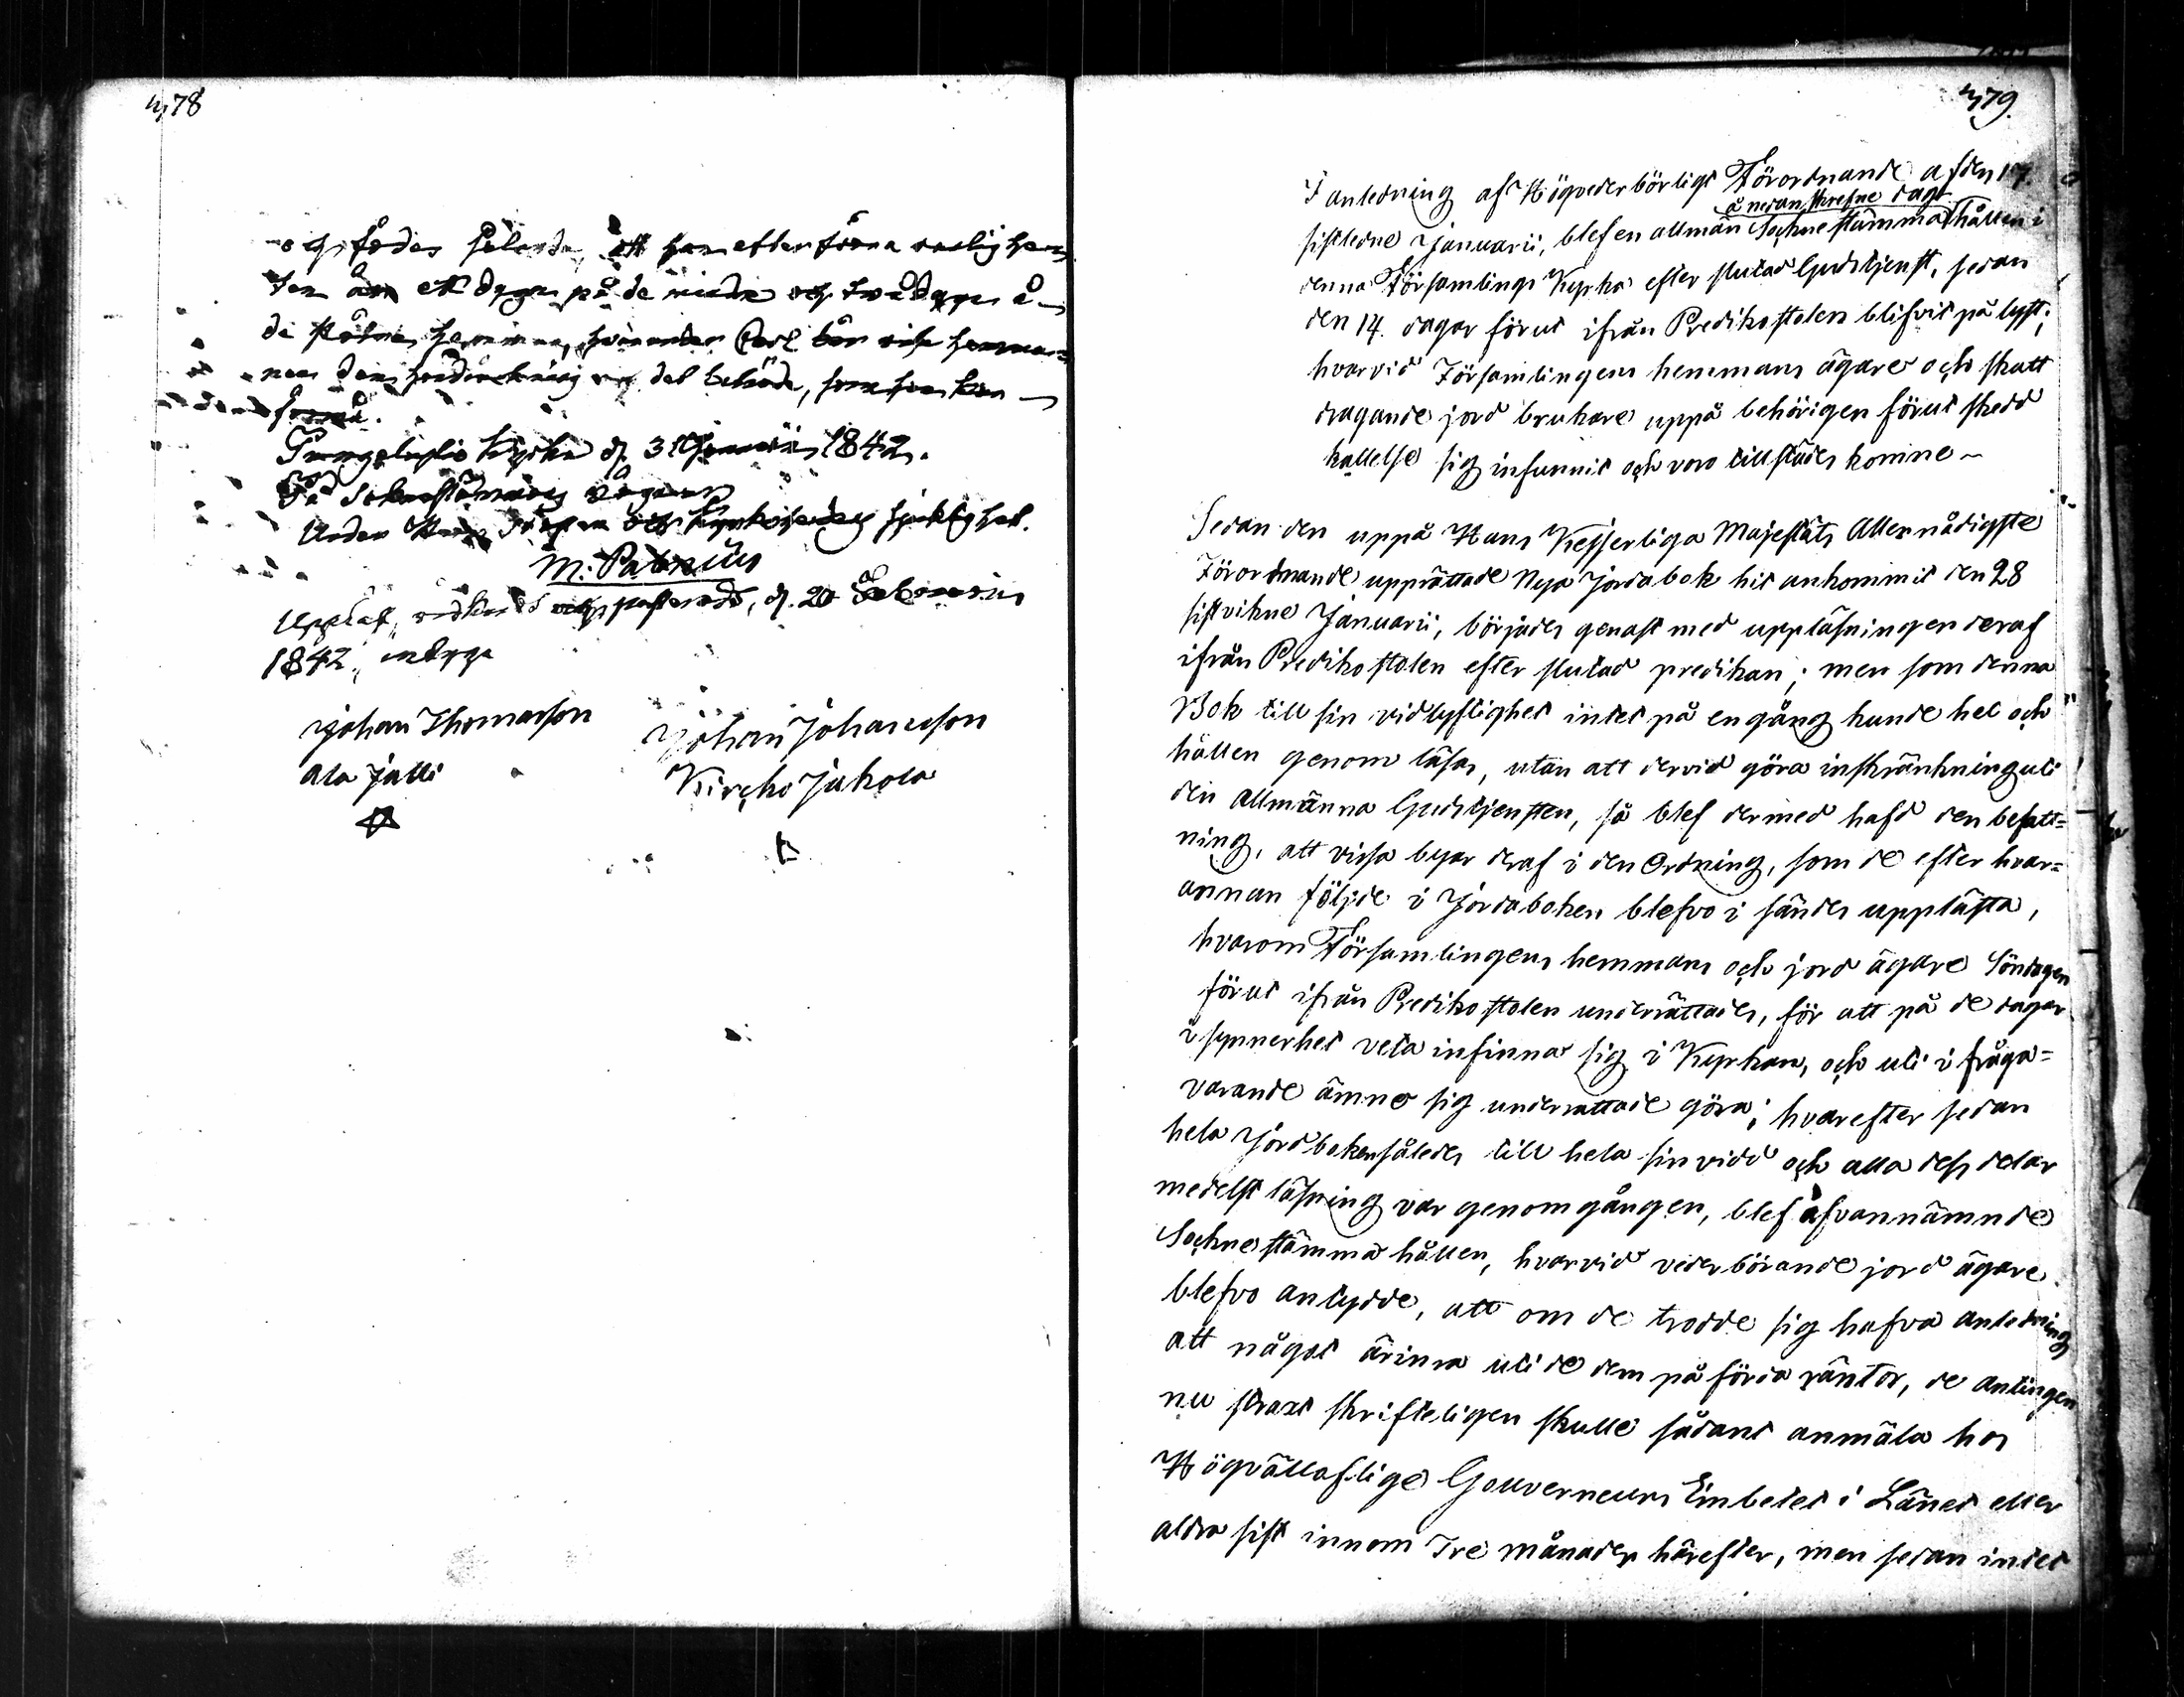 478
och födes således, att han efter förra vanligheten
ett dygn på de mindre och två dygn å
de större hemman, hvarunder Carl bör vise hemma-
nen den och det behöde, som han kan
förmå.
Kyrka d. 31 Januarii 1842.
På Sockenstämmans vägnar
Under Herr Prosten och Kyrkoherdens sjuklighet.
M: Pabnius
Uppläst, vidkänd och justerad, d. 20 Februarii
1842, intyga
Johan Thomasson
Ala Jalli
Johan Johansson
Kircko Jakola
479.
I anledning af Högvederbörligt Förordnande af den 17.
å nedanskrefne dag
sistledne Januarii, blef en allmän Sochnestämma hållen i
denna Församlings Kyrka efter slutad Gudstjenst, sedan
den 14. dagar förut ifrån Predikostolen blifvit pålyst;
hvarvid Församlingens hemmans ägare och skatt
dragande jord brukare uppå behörigen förut skedd
kallelse sig infunnit och voro tillstädes komne ~
Sedan den uppå Hans Kejserliga Majestäts Allernådigste
Förordnande upprättade Nya Jordabok hit ankommit den 28
sistvikne Januarii, börjades genast med uppläsningen deraf
ifrån Predikostolen efter slutad predikan; men som denna
Bok till sin vidlyftighet intet på en gång kunde hel och
hållen genom läsas, utan att dervid göra inskränkning uti
den allmänna Gudstjensten, så blef dermed hafd den befatt=
ning, att vissa byar deraf i den Ordning, som de efter hvar=
annan följde i Jordaboken blefvo i sänder upplästa,
hvarom Församlingens hemmans och jord ägare Söndagen
förut ifrån Predikostolen underrättades, för att på de dagar
i synnerhet veta infinna sig i Kyrkan, och uti i fråga=
varande ämne sig underrattade göra; hvarefter sedan
hela Jordboken således till hela sin vidd och alla dess delar
medelst läsning var genomgången, blef åfvannämnde
Sochnestämma hållen, hvarvid vederbörande jord ägare
blefvo antydde, att om de trodde sig hafva anledning
att något ärinra uti de dem påförda räntor, de antingen
nu straxt skrifteligen skulle sådant anmäla hos
Högvällaflige Gouverneurs Embetet i Länet eller
aldra sist innom Tre månader härefter, men sedan intet